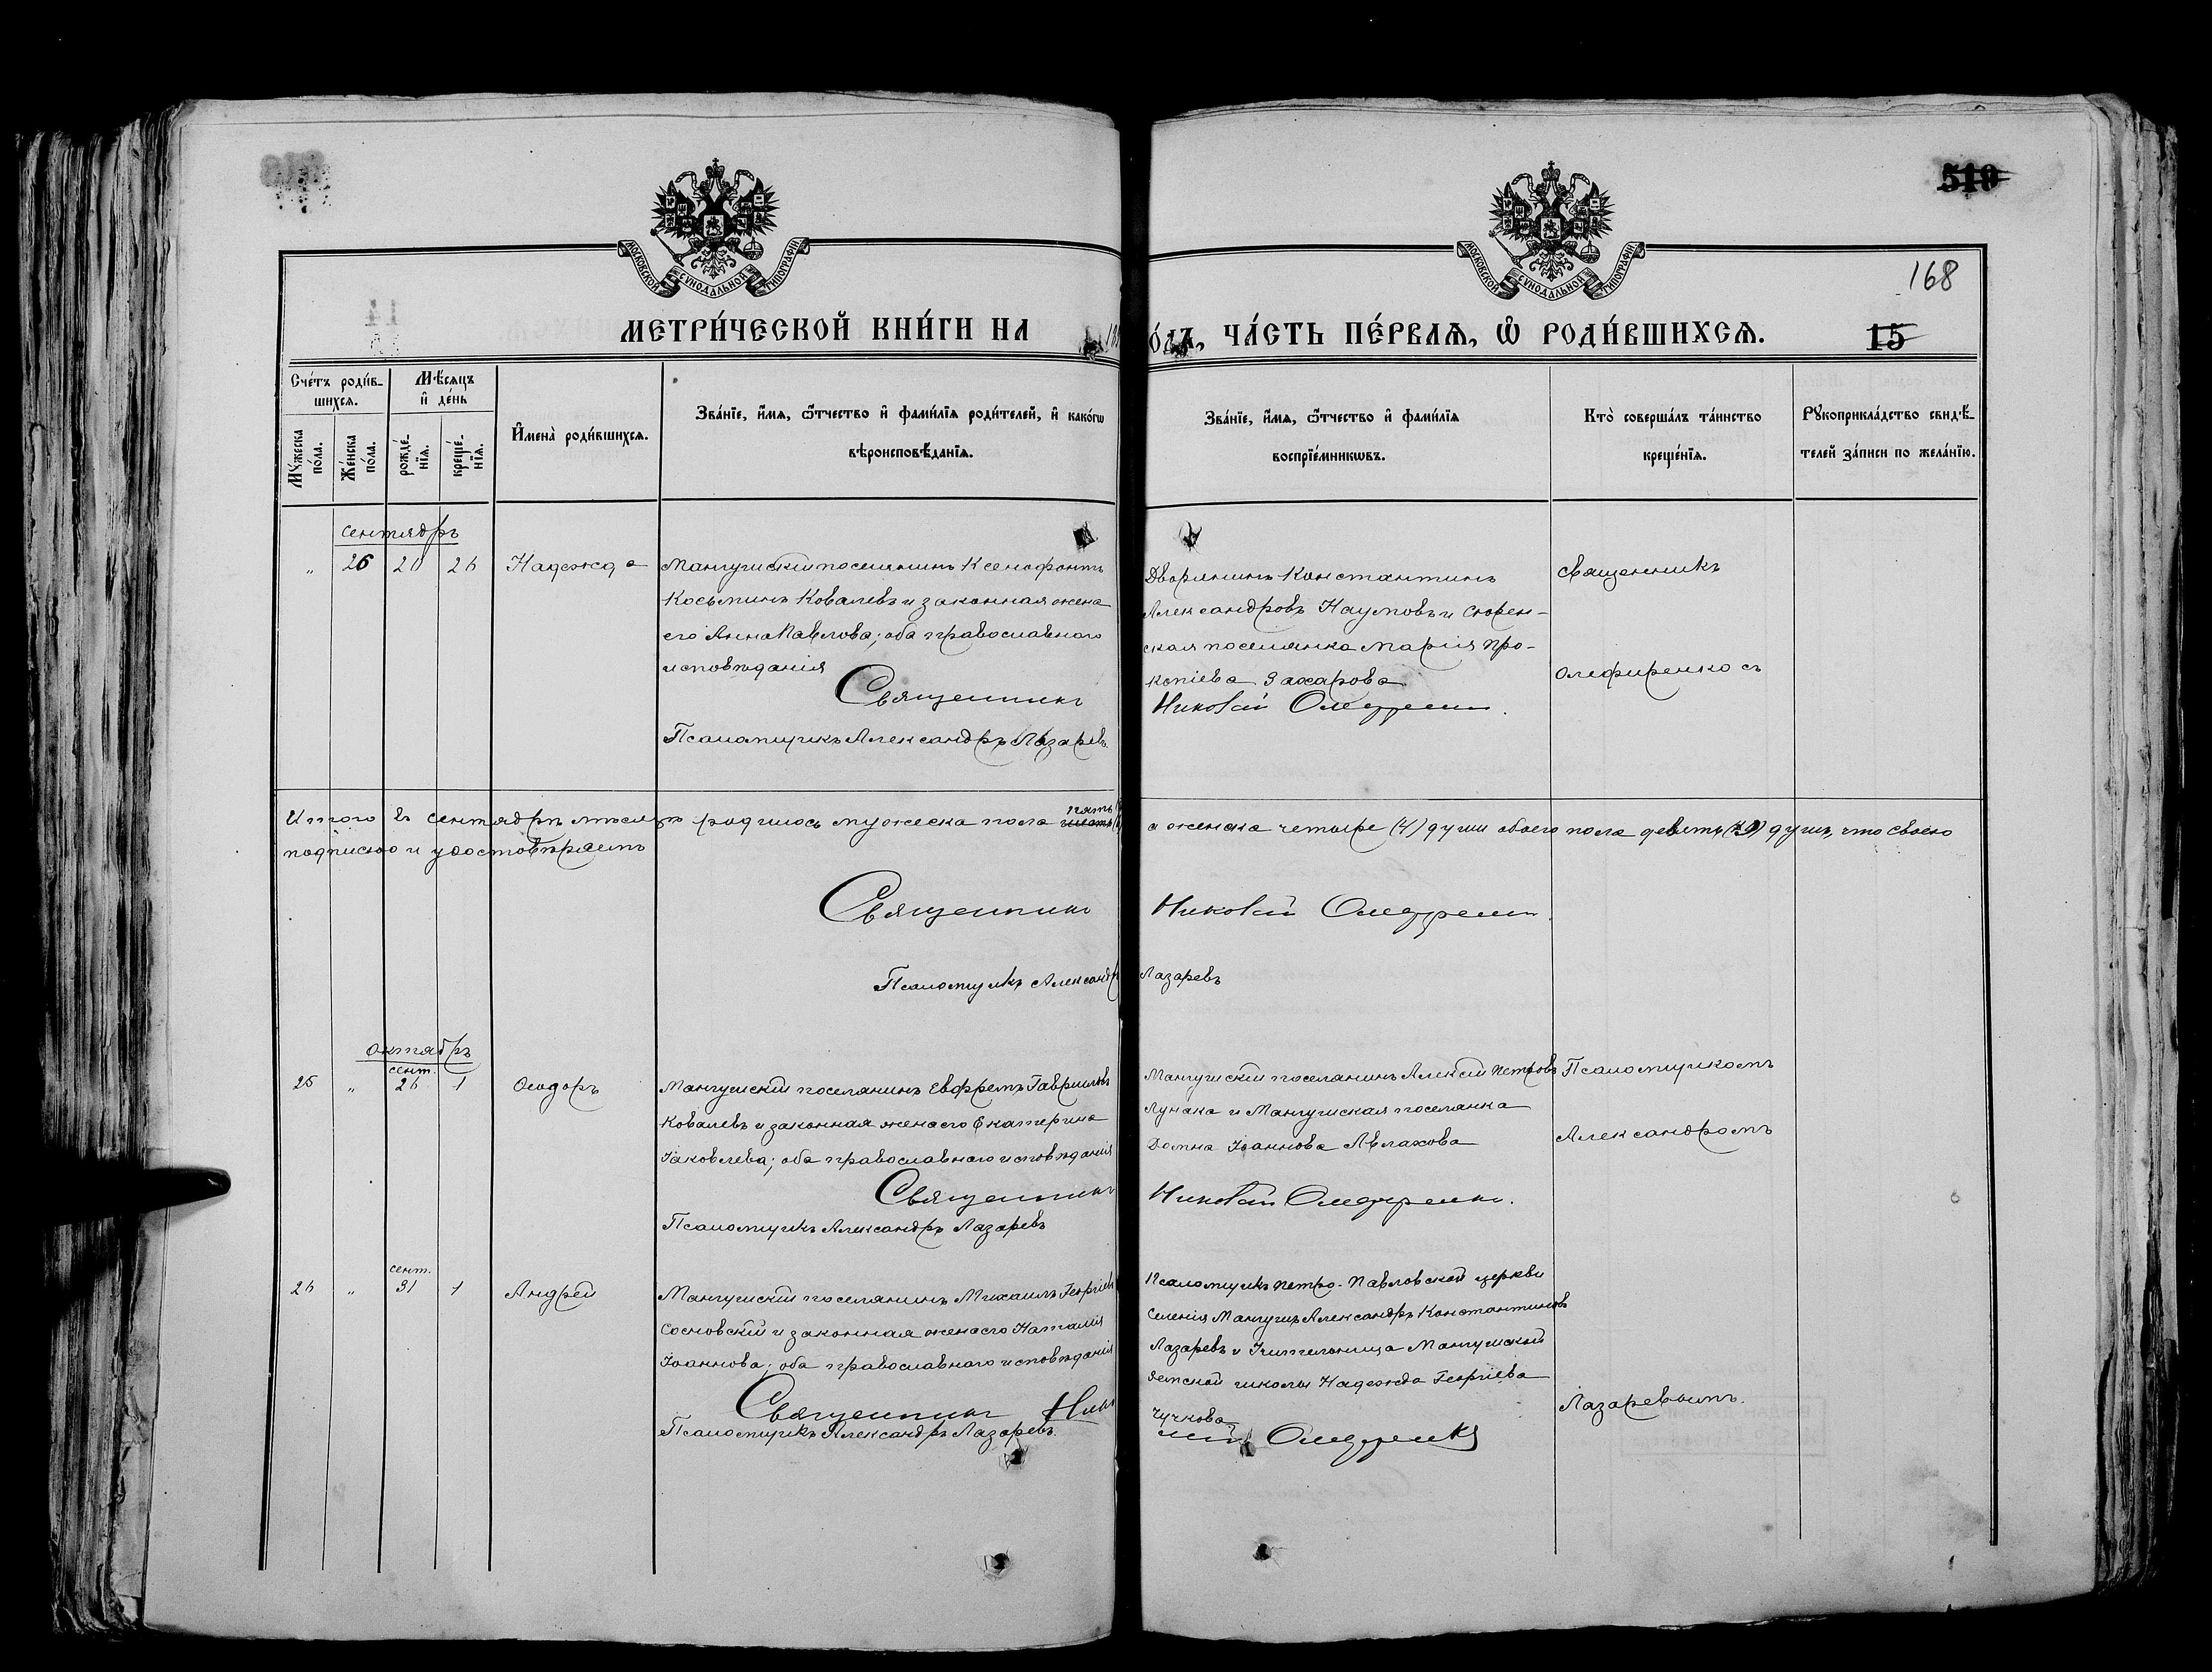 519
168
15
МОСКОВСКОЙ СѴНОДАЛЬНОЙ ТИПОГРАФІИ
МОСКОВСКОЙ СѴНОДАЛЬНОЙ ТИПОГРАФІИ
МЕТРИ́ЧЕСКОЙ КНИ́ГИ НА
ЧА́СТЬ ПЕ́РВАѦ, Ѽ РОДИ́ВШИХСѦ.
Сче́тъ роди́в-
шихсѧ.
Мѣ́сѧцъ
и҆ де́нь
Мꙋ́жеска
по́ла.
Же́нска
по́ла.
рожде́-
нїѧ.
креще́-
нїѧ.
И҆мена̀ роди́вшихсѧ.
Зва́нїе, и҆́мѧ, ѻ҆́тчество и҆ фами́лїѧ роди́телей, и҆ како́гѡ
вѣроисповѣ́данїѧ.
Зва́нїе, и҆́мѧ, ѻ҆́тчество и҆ фами́лїѧ
воспрїе́мникѡвъ.
Кто̀ соверша́лъ та́инство
креще́нїѧ.
Рꙋкоприкла́дство свидѣ́-
телей за́писи по жела́нїю.
сентябрь
„ 26 20 26 Надежда
Мангушскій поселянинъ Ксенофонтъ
Косьминъ Ковалевъ и законная жена
его Анна Павлова; оба православнаго
исповѣданія
Священникъ
Псаломщикъ Александръ Лазаревъ
Дворянинъ Константинъ
Александровъ Наумовъ и Сюрен-
ская поселянка Марія Про-
копіева Захарова
Николай Олефиренко.
Священникъ
Олефиренко съ
Итого въ сентябрѣ мѣсяцѣ родилось мужеска пола пять
а женска четыре (4) души обоего пола девять (9) душъ, что своею
подписью и удостовѣряемъ
Священникъ Николай Олефиренко
Псаломщикъ Александръ Лазаревъ
Октябрь
25 „ сент. 26 1 Ѳеодоръ
Мангушскій поселянинъ Евфремъ Гавриловъ
Ковалевъ и законная жена его Екатерина
Іаковлева; оба православнаго исповѣданія
Священникъ
Псаломщикъ Александръ Лазаревъ
Мангушскій поселянинъ Алексій Петровъ
Лунака и Мангушская поселянка
Домна Іоаннова Авлахова
Николай Олефиренко.
Псаломщикомъ
Александромъ
26 „ сент. 31 1 Андрей
Мангушскій поселянинъ Михаилъ Георгіевъ
Сосновскій и законная жена его Наталія
Іоаннова; оба православнаго исповѣданія
Священникъ Нико
Псаломщикъ Александръ Лазаревъ.
Псаломщикъ Петро-Павловской церкви
селенія Мангушъ Александръ Константиновъ
Лазаревъ и Учительница Мангушской
земской школы Надежда Георгіева
Чучкова
лай Олефиренко
Лазаревымъ.